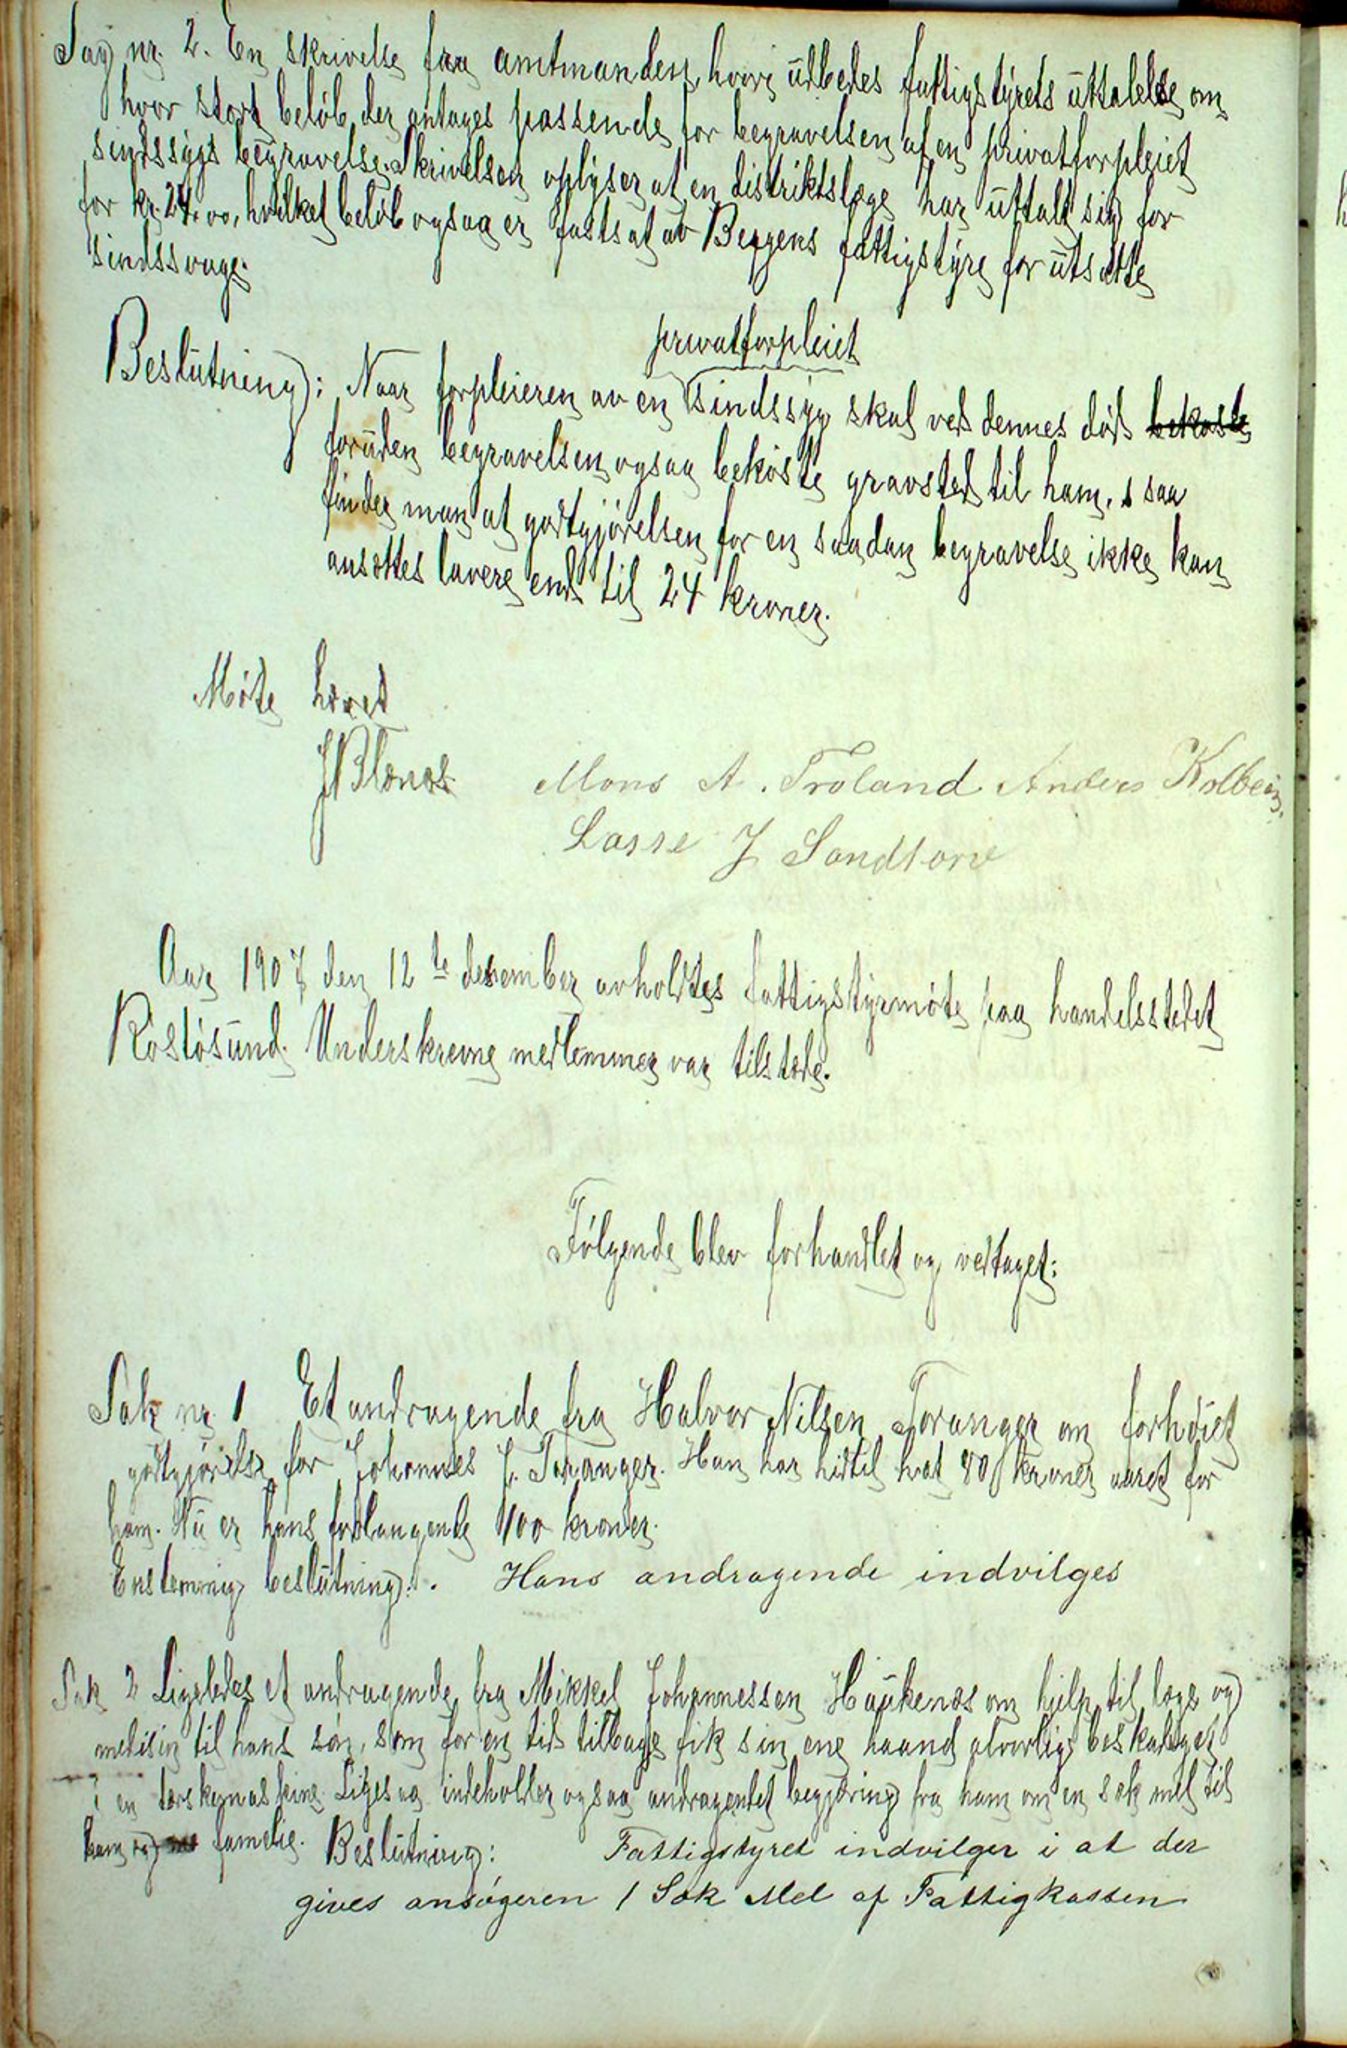 Sag nr. 2. En skrivelse fra amtmanden, hvori udbedes fattigstyrets uttalelse om
hvor stort beløb der antages passende for begravelsen af en privatforpleiet
sindssygs begravelse. Skrivelsen oplyser at en distriktslæge har uttalt sig for
for kr. 24.00, hvilket beløb ogsaa er fastsat av Bergens fattigstyre for utsatte
sindssvage.
privatforpleiet
Beslutning: Naar forpleieren av en sindssyg skal ved dennes død bekoste
foruden begravelsen ogsaa bekoste gravsted til ham, saa
finder man at godtgjørelsen for en saadan begravelse ikke kan
ansættes lavere end til 24 kroner.
Møte hævet
J Blænæs Mons A. Troland Anders Kolbeins.
Lasse J Sandtorv
Aar 1907 den 12te desember avholdtes fattigstyrmøte paa handelsstedet
Rostøsund. Underskrevne medlemmer var tilstede.
Følgende blev forhandlet og vedtaget:
Sak nr 1 Et andragende fra Halvor Nilsen Toranger om forhøiet
godtgjørelse for Johannes J. Toranger. Han har hidtil hat 80 kroner aaret for
ham. Nu er hans forlangende 100 kroner.
Enstemmig beslutning: Hans andragende indvilges
Sak 2 Ligeledes et andragende fra Mikkel Johannessen Haukenæs om hjelp til læge og
medisin til hans søn, som for en tid tilbage fik sin ene haand alvorlig beskadiget
i en tærskemaskine. Ligesaa indeholder ogsaa andragendet begjæring fra ham om en sæk mel til
ham og familie. Beslutning: Fattigstyret indvilger i at der
gives ansøgeren 1 Sæk Mel af Fattigkassen